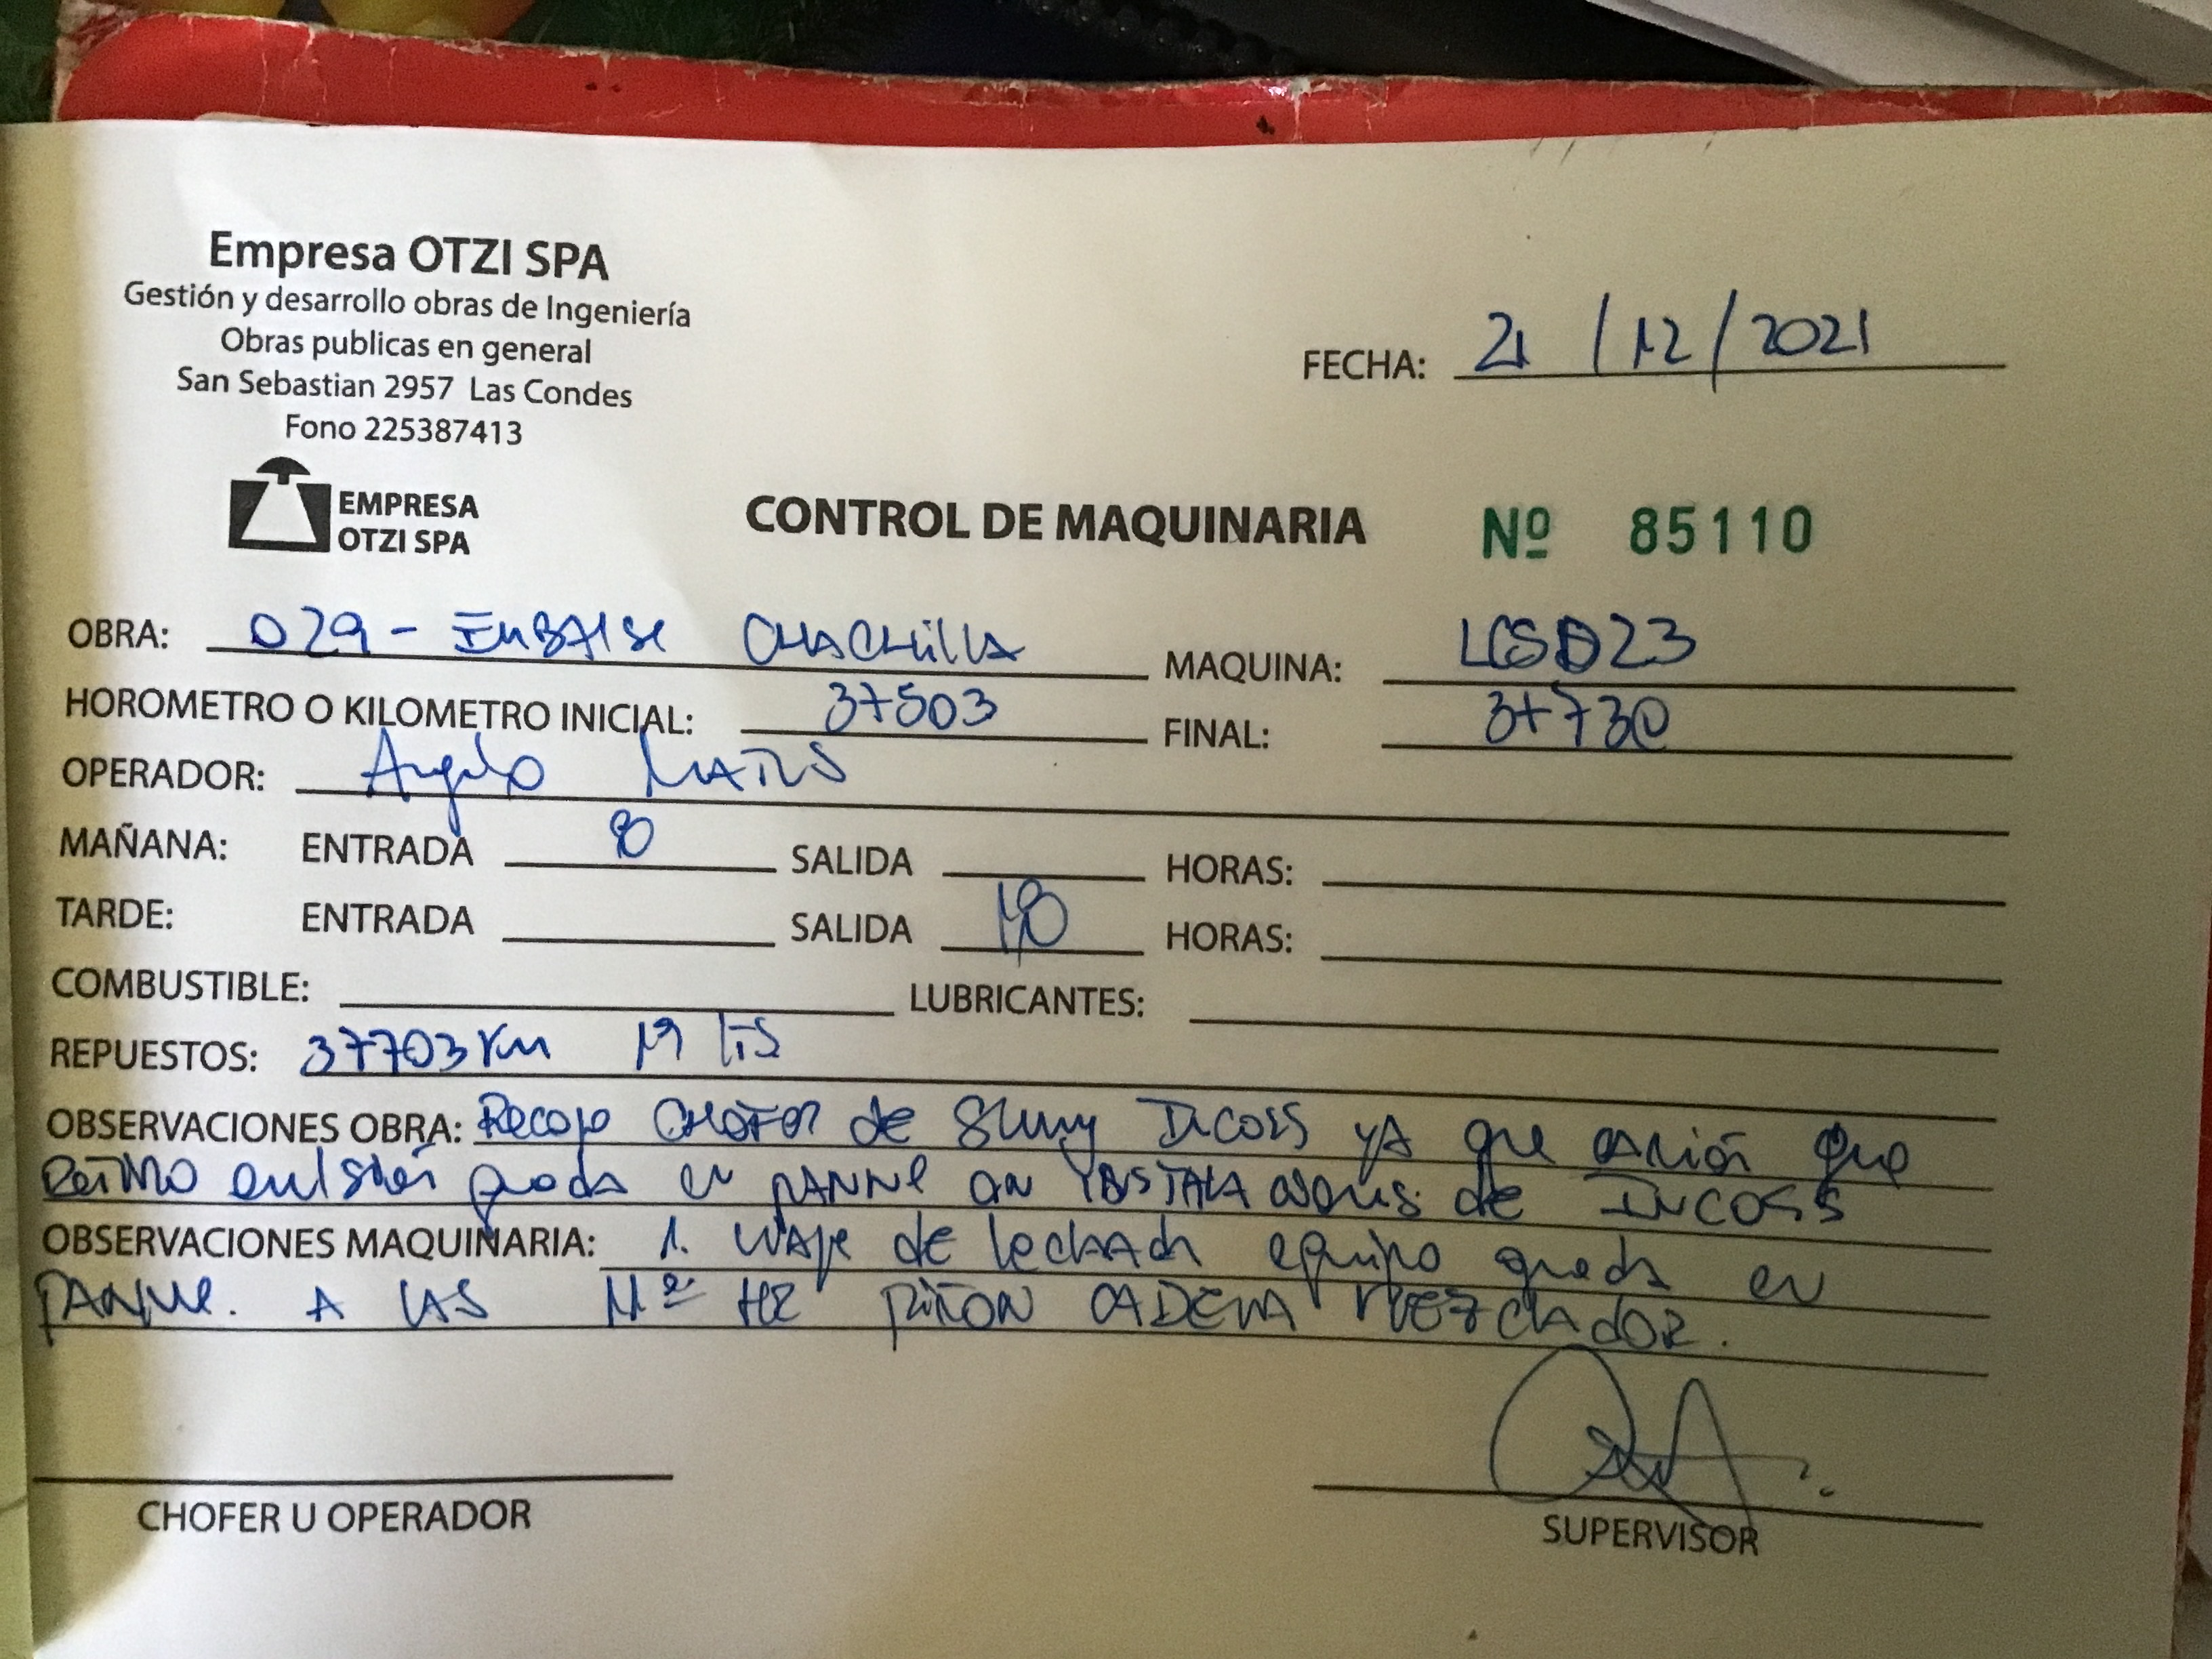 Empresa OTZI SPA
Gestión y desarrollo obras de Ingeniería
Obras publicas en general
San Sebastian 2957 Las Condes
Fono 225387413
FECHA: 21/12/2021
EMPRESA
OTZI SPA
CONTROL DE MAQUINARIA Nº 85110
OBRA: 029 - EMBALSE CHACRILLA MAQUINA: LCSD23
HOROMETRO O KILOMETRO INICIAL: 37503 FINAL: 37730
OPERADOR: Angelo
MAÑANA: ENTRADA 8 SALIDA HORAS:
TARDE: ENTRADA SALIDA 18 HORAS:
COMBUSTIBLE: LUBRICANTES:
REPUESTOS: 37703 Km 19 LTS
OBSERVACIONES OBRA: Recojo de Slurry ya que camión que
emulsión queda en PANNE de INCOSS
OBSERVACIONES MAQUINARIA: 1. viaje de lechada equipo queda en
PANNE. A LAS PIÑON CADENA
CHOFER U OPERADOR
SUPERVISOR